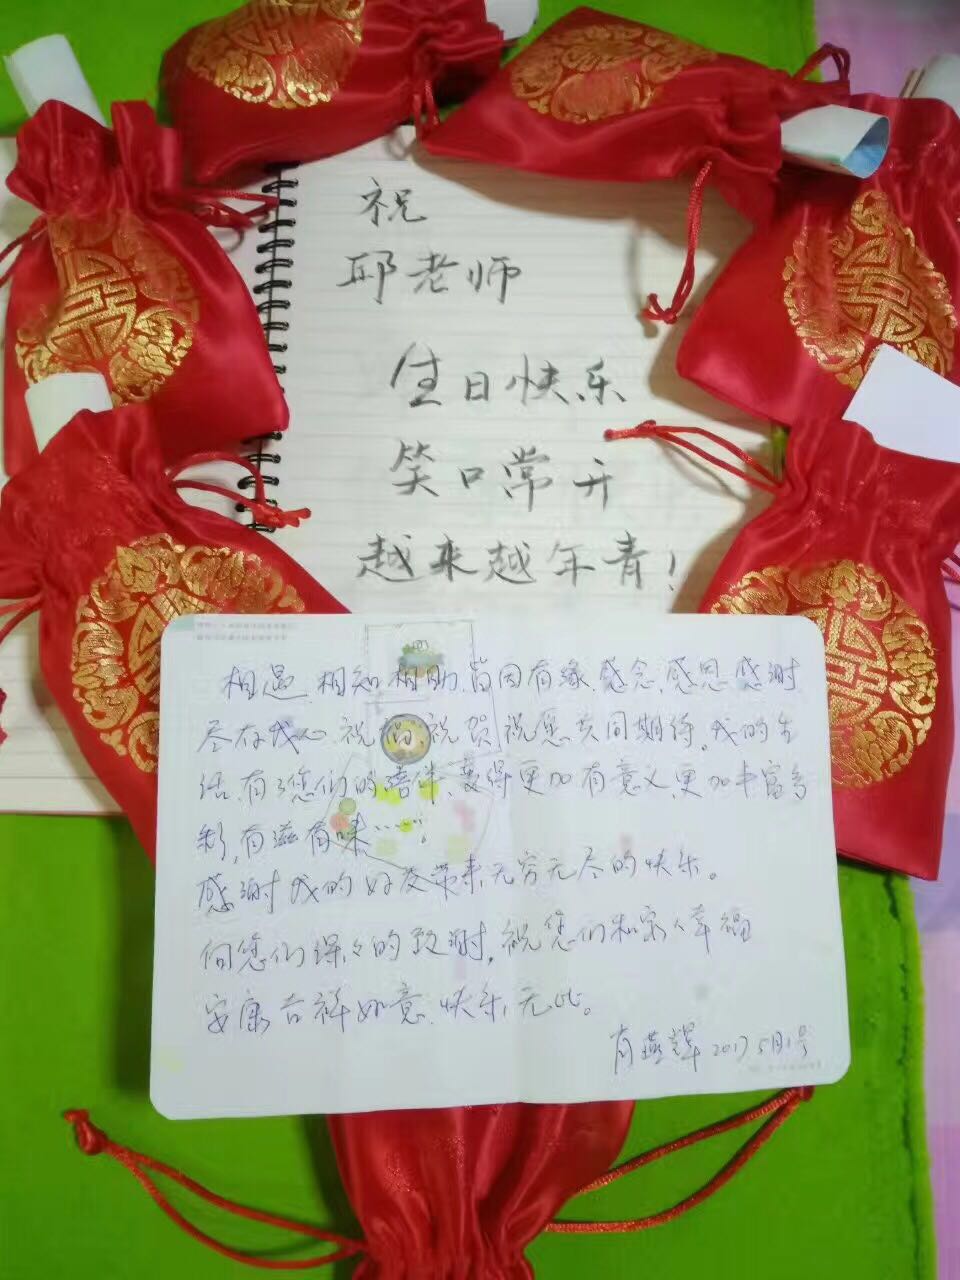 祝
邱老师
生日快乐
笑口常开
越来越年青!
相遇、相知相助,皆因有缘、感念、感恩感谢
尽在我心、祝福祝贺祝愿共同期待。我的生
活,有了您们的陪伴、变得更加有意义,更加丰富多
彩,有滋有味……。
感谢我的好友带来无穷无尽的快乐。
向您们深々的致谢,祝您们和家人幸福
安康吉祥如意、快乐无比。
肖燕辉 2017 5月1号